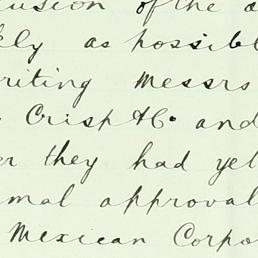 lusion of the a
ly as possibl
riting Messrs
Crisp & Co. and
er they had yet
mal approval
Mexican Corpo